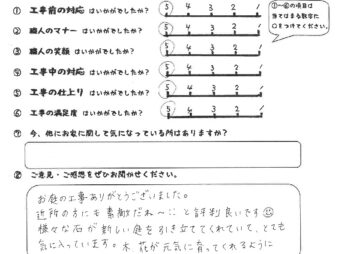 ① 工事前の対応 はいかがでしたか? 5 4 3 2 1
② 職人のマナー はいかがでしたか? 5 4 3 2 1
③ 職人の笑顔 はいかがでしたか? 5 4 3 2 1
④ 工事中の対応 はいかがでしたか? 5 4 3 2 1
⑤ 工事の仕上り はいかがでしたか? 5 4 3 2 1
⑥ 工事の満足度 はいかがでしたか? 5 4 3 2 1
①~⑥の項目は
当てはまる数字に
○をつけてください。
⑦ 今、他にお家に関して気になっている所はありますか?
⑧ ご意見・ご感想をぜひお聞かせください。
お庭の工事ありがとうございました。
近所の方にも素敵だね〜と評判良いです
様々な石が新しい庭を引き立ててくれていて、とても
気に入っています。木、花が元気に育ってくれるように